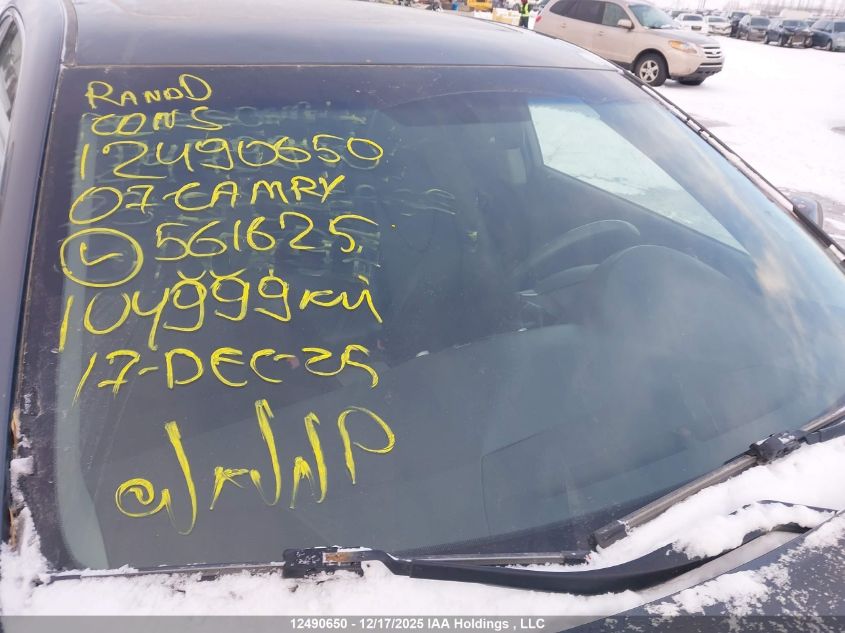 RANDD
CONS
12490650
07-CAMRY
561625
104999KM
17-DEC-25
12490650 - 12/17/2025 IAA Holdings , LLC